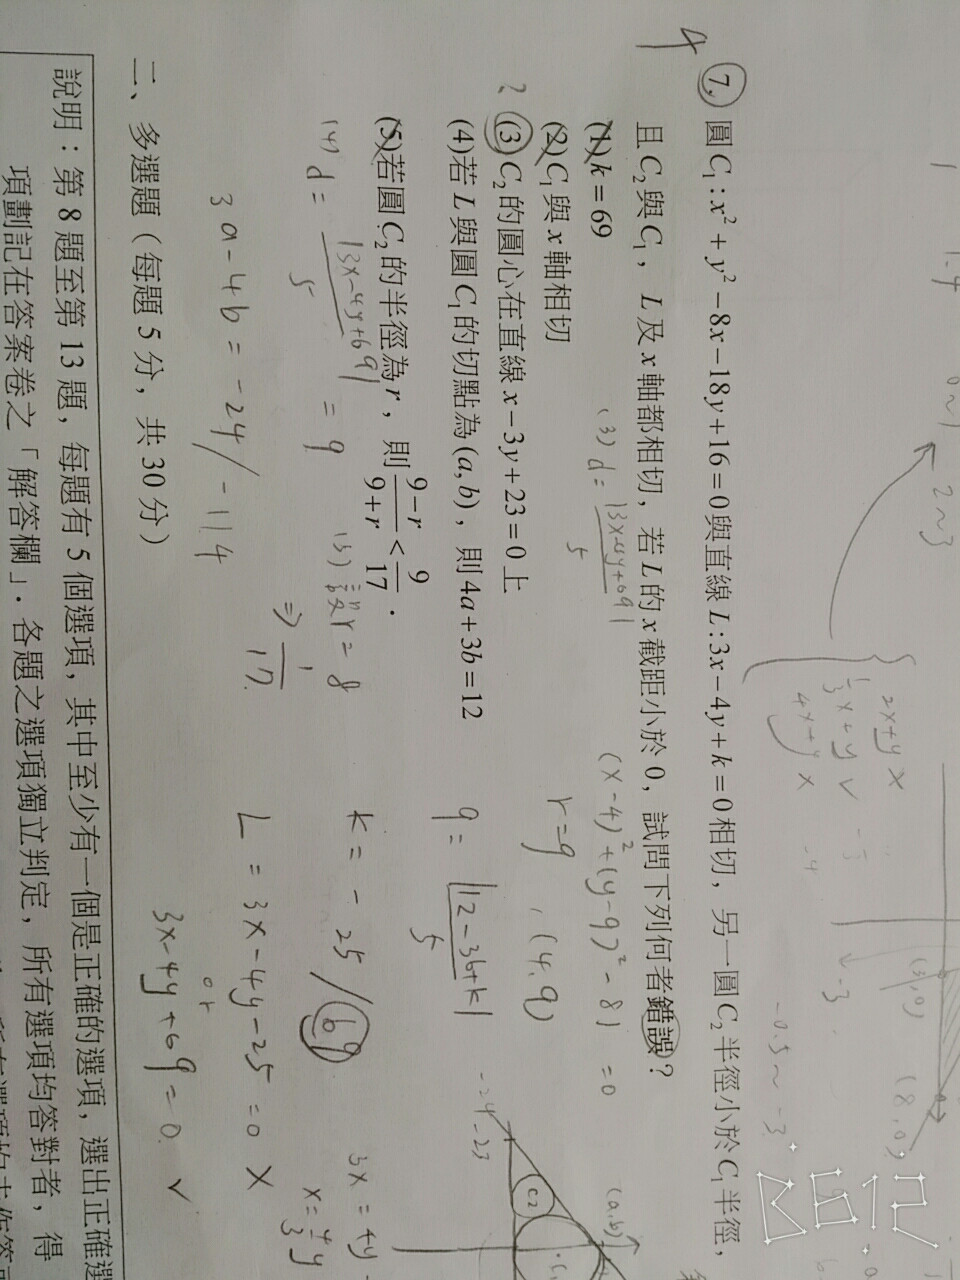 4
⑦ 圓C₁:x²+y²−8x−18y+16=0與直線L:3x−4y+k=0相切，另一圓C₂半徑小於C₁半徑，
且C₂與C₁，L及x軸都相切，若L的x截距小於0，試問下列何者錯誤？
(1)k=69
(2)C₁與x軸相切
? (3)C₂的圓心在直線x−3y+23=0上
(4)若L與圓C₁的切點為(a,b)，則4a+3b=12
(5)若圓C₂的半徑為r，則(9−r)/(9+r)<9/17．
(x−4)²+(y−9)²−81=0
r=9，(4,9)
9=|12−36+k|/5
k=−25/69
L=3x−4y−25=0 X
or
3x−4y+69=0 ✓
(3) d=|3x−4y+69|/5
(4) d=|3x−4y+69|/5=9
3a−4b=−24/−114
(5) 設r=8
⇒1/17
3x=4y
x=4/3y
−24
−23
C₂
C₁
(a,b)
2x+y X
1/3x+y ✓
4x+y X
0~1
2~3
−0.5~−3
(3,0)
(8,0)
−3
二、多選題（每題5分，共30分）
說明：第8題至第13題，每題有5個選項，其中至少有一個是正確的選項，選出正確選
項劃記在答案卷之「解答欄」．各題之選項獨立判定，所有選項均答對者，得